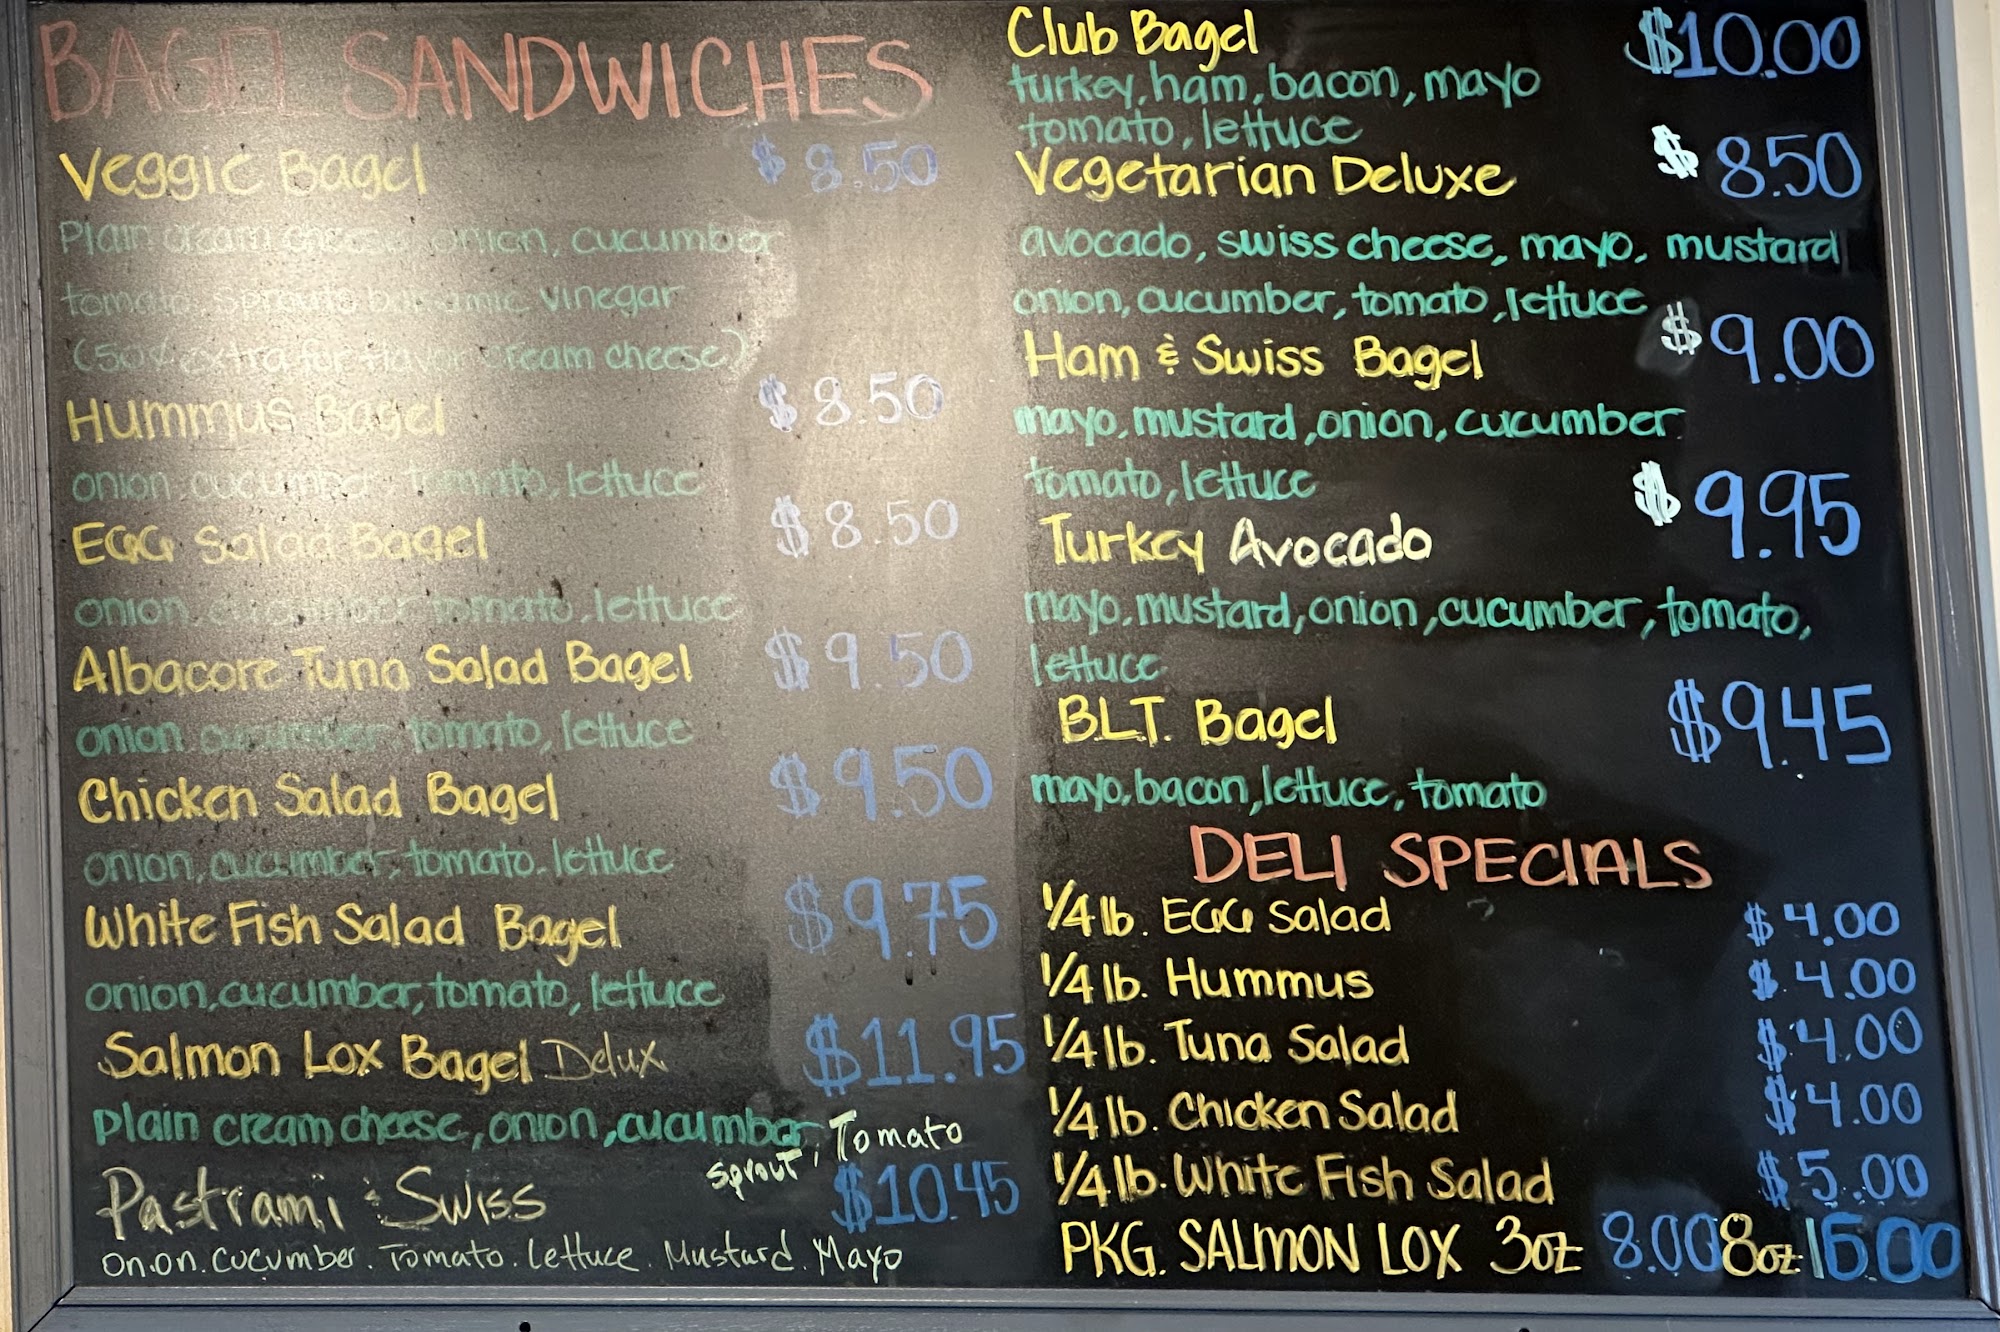 BAGEL SANDWICHES
Veggie Bagel $8.50
Plain cream cheese, onion, cucumber
tomato, sprouts balsamic vinegar
(50¢ extra for flavor cream cheese)
Hummus Bagel $8.50
onion, cucumber, tomato, lettuce
EGG Salad Bagel $8.50
onion, cucumber, tomato, lettuce
Albacore Tuna Salad Bagel $9.50
onion, cucumber, tomato, lettuce
Chicken Salad Bagel $9.50
onion, cucumber, tomato, lettuce
White Fish Salad Bagel $9.75
onion, cucumber, tomato, lettuce
Salmon Lox Bagel Delux $11.95
Plain cream cheese, onion, cucumber, Tomato
sprout,
Pastrami & Swiss $10.45
onion. cucumber. Tomato. Lettuce. Mustard. Mayo
Club Bagel $10.00
turkey, ham, bacon, mayo
tomato, lettuce
Vegetarian Deluxe $8.50
avocado, swiss cheese, mayo, mustard
onion, cucumber, tomato, lettuce
Ham & Swiss Bagel $9.00
mayo, mustard, onion, cucumber
tomato, lettuce
Turkey Avocado $9.95
mayo, mustard, onion, cucumber, tomato,
lettuce
B.L.T. Bagel $9.45
mayo, bacon, lettuce, tomato
DELI SPECIALS
1/4 lb. EGG Salad $4.00
1/4 lb. Hummus $4.00
1/4 lb. Tuna Salad $4.00
1/4 lb. Chicken Salad $4.00
1/4 lb. White Fish Salad $5.00
PKG. SALMON LOX 3oz 8.00 8oz 15.00